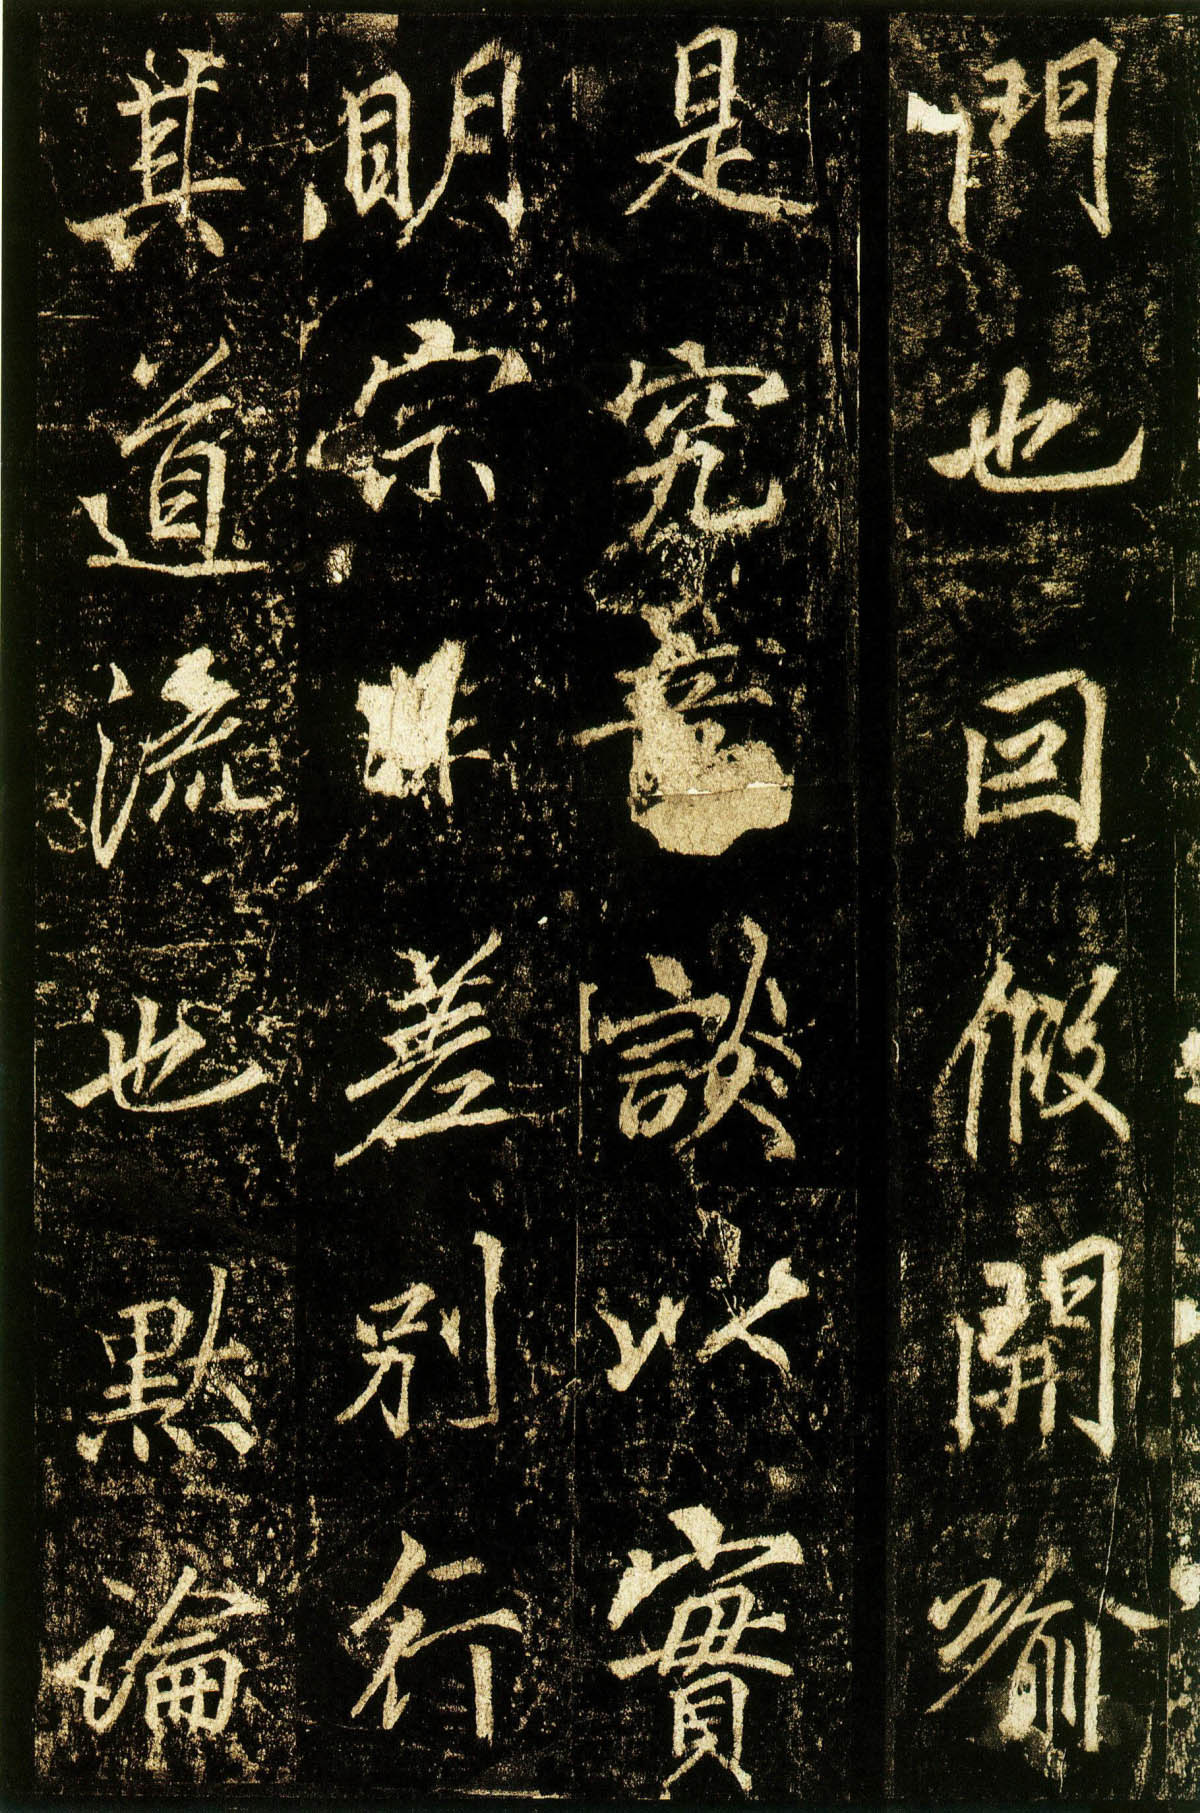 門也因假開喻
是究竟談以實
明宗非差別行
其道流也默論